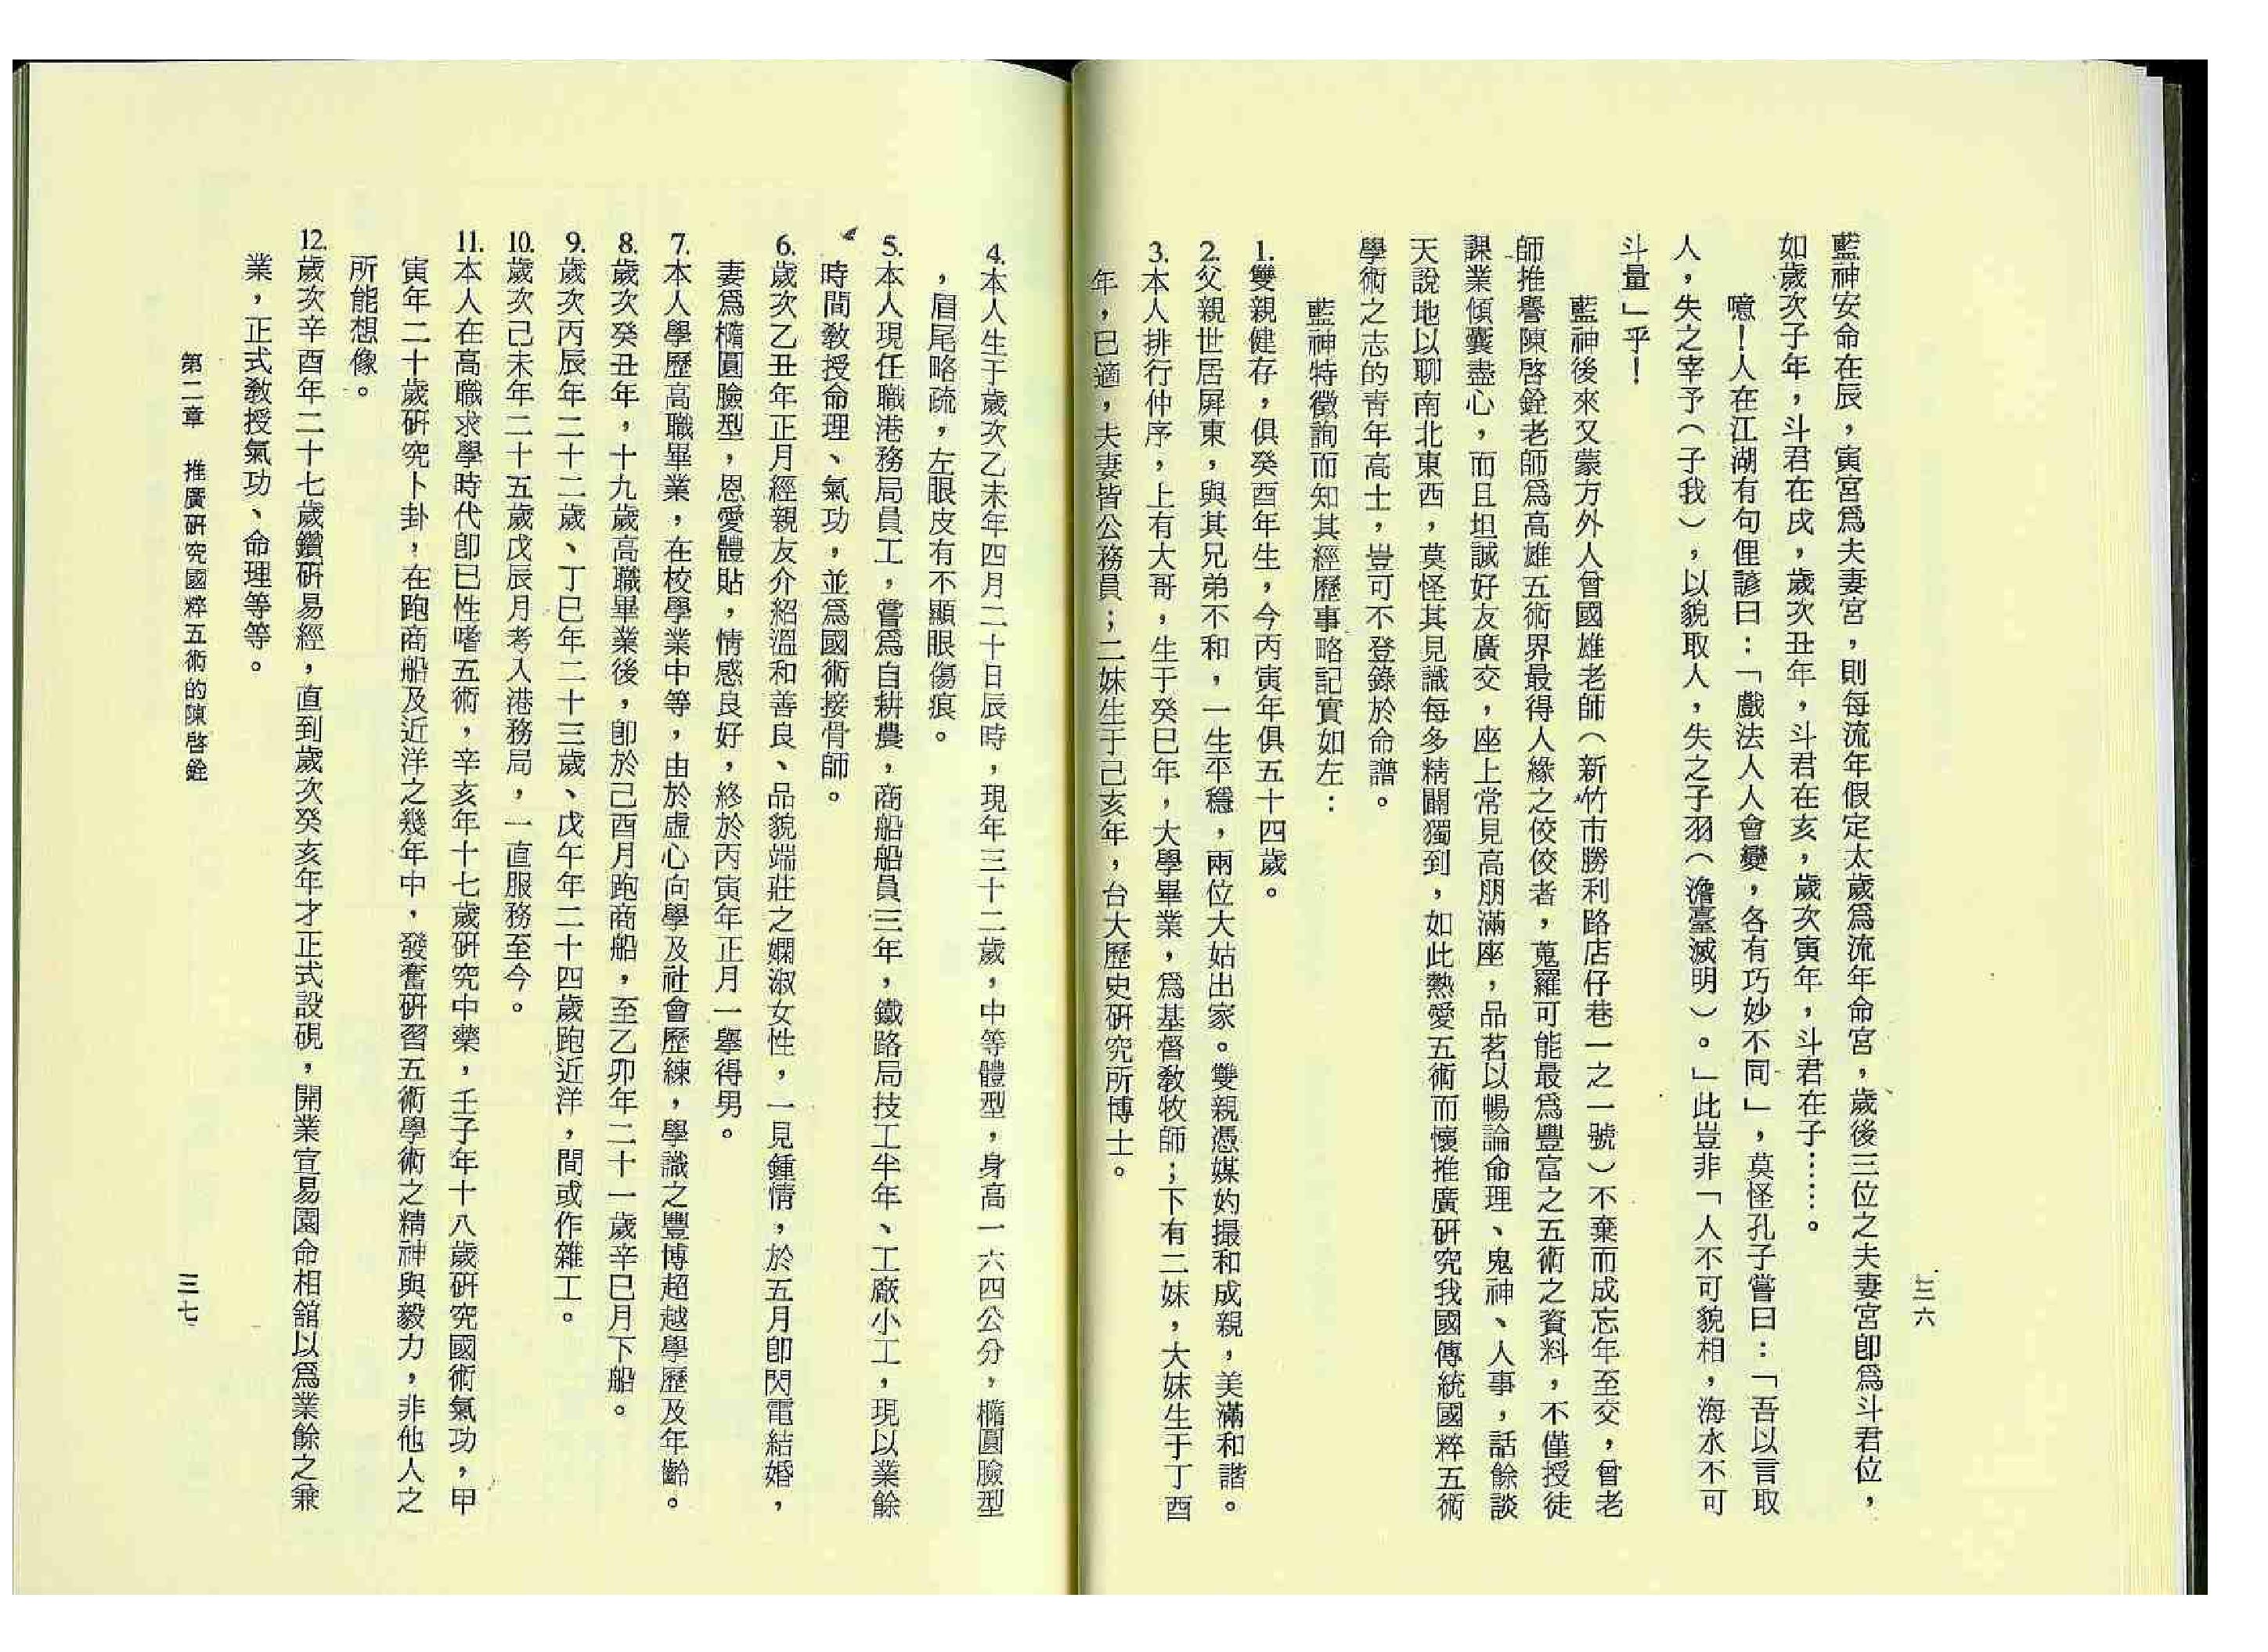 三六
藍神安命在辰，寅宮爲夫妻宮，則每流年假定太歲爲流年命宮，歲後三位之夫妻宮卽爲斗君位，
如歲次子年，斗君在戌，歲次丑年，斗君在亥，歲次寅年，斗君在子……。
噫！人在江湖有句俚諺曰：「戲法人人會變，各有巧妙不同」，莫怪孔子嘗曰：「吾以言取
人，失之宰予（子我），以貌取人，失之子羽（澹臺滅明）。」此豈非「人不可貌相，海水不可
斗量」乎！
藍神後來又蒙方外人曾國雄老師（新竹市勝利路店仔巷一之一號）不棄而成忘年至交，曾老
師推譽陳啓銓老師爲高雄五術界最得人緣之佼佼者，蒐羅可能最爲豐富之五術之資料，不僅授徒
課業傾囊盡心，而且坦誠好友廣交，座上常見高朋滿座，品茗以暢論命理、鬼神、人事，話餘談
天說地以聊南北東西，莫怪其見識每多精闢獨到，如此熱愛五術而懷推廣硏究我國傳統國粹五術
學術之志的靑年高士，豈可不登錄於命譜。
藍神特徵詢而知其經歷事略記實如左：
1.雙親健存，俱癸酉年生，今丙寅年俱五十四歲。
2.父親世居屛東，與其兄弟不和，一生平穩，兩位大姑出家。雙親憑媒妁撮和成親，美滿和諧。
3.本人排行仲序，上有大哥，生于癸巳年，大學畢業，爲基督敎牧師；下有二妹，大妹生于丁酉
年，已適，夫妻皆公務員；二妹生于己亥年，台大歷史硏究所博士。
4.本人生于歲次乙未年四月二十日辰時，現年三十二歲，中等體型，身高一六四公分，橢圓臉型
，眉尾略疏，左眼皮有不顯眼傷痕。
5.本人現任職港務局員工，嘗爲自耕農，商船船員三年，鐵路局技工半年、工廠小工，現以業餘
時間敎授命理、氣功，並爲國術接骨師。
6.歲次乙丑年正月經親友介紹溫和善良、品貌端莊之嫻淑女性，一見鍾情，於五月卽閃電結婚，
妻爲橢圓臉型，恩愛體貼，情感良好，終於丙寅年正月一舉得男。
7.本人學歷高職畢業，在校學業中等，由於虛心向學及社會歷練，學識之豐博超越學歷及年齡。
8.歲次癸丑年，十九歲高職畢業後，卽於己酉月跑商船，至乙卯年二十一歲辛巳月下船。
9.歲次丙辰年二十二歲、丁巳年二十三歲、戊午年二十四歲跑近洋，間或作雜工。
10.歲次己未年二十五歲戊辰月考入港務局，一直服務至今。
11.本人在高職求學時代卽已性嗜五術，辛亥年十七歲硏究中藥，壬子年十八歲硏究國術氣功，甲
寅年二十歲硏究卜卦，在跑商船及近洋之幾年中，發奮硏習五術學術之精神與毅力，非他人之
所能想像。
12.歲次辛酉年二十七歲鑽硏易經，直到歲次癸亥年才正式設硯，開業宣易園命相舘以爲業餘之兼
業，正式敎授氣功、命理等等。
第二章　推廣硏究國粹五術的陳啓銓
三七